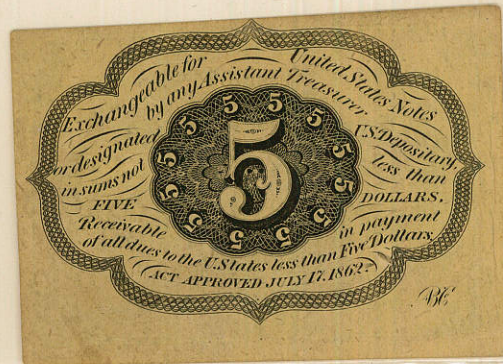 Exchangeable for United States Notes
by any Assistant Treasurer
or designated U.S. Depositary,
in sums not less than
FIVE DOLLARS.
Receivable in payment
of all dues to the U. States less than Five Dollars,
ACT APPROVED JULY 17, 1862.
5
5
5
5
5
5
5
5
5
5
5
5